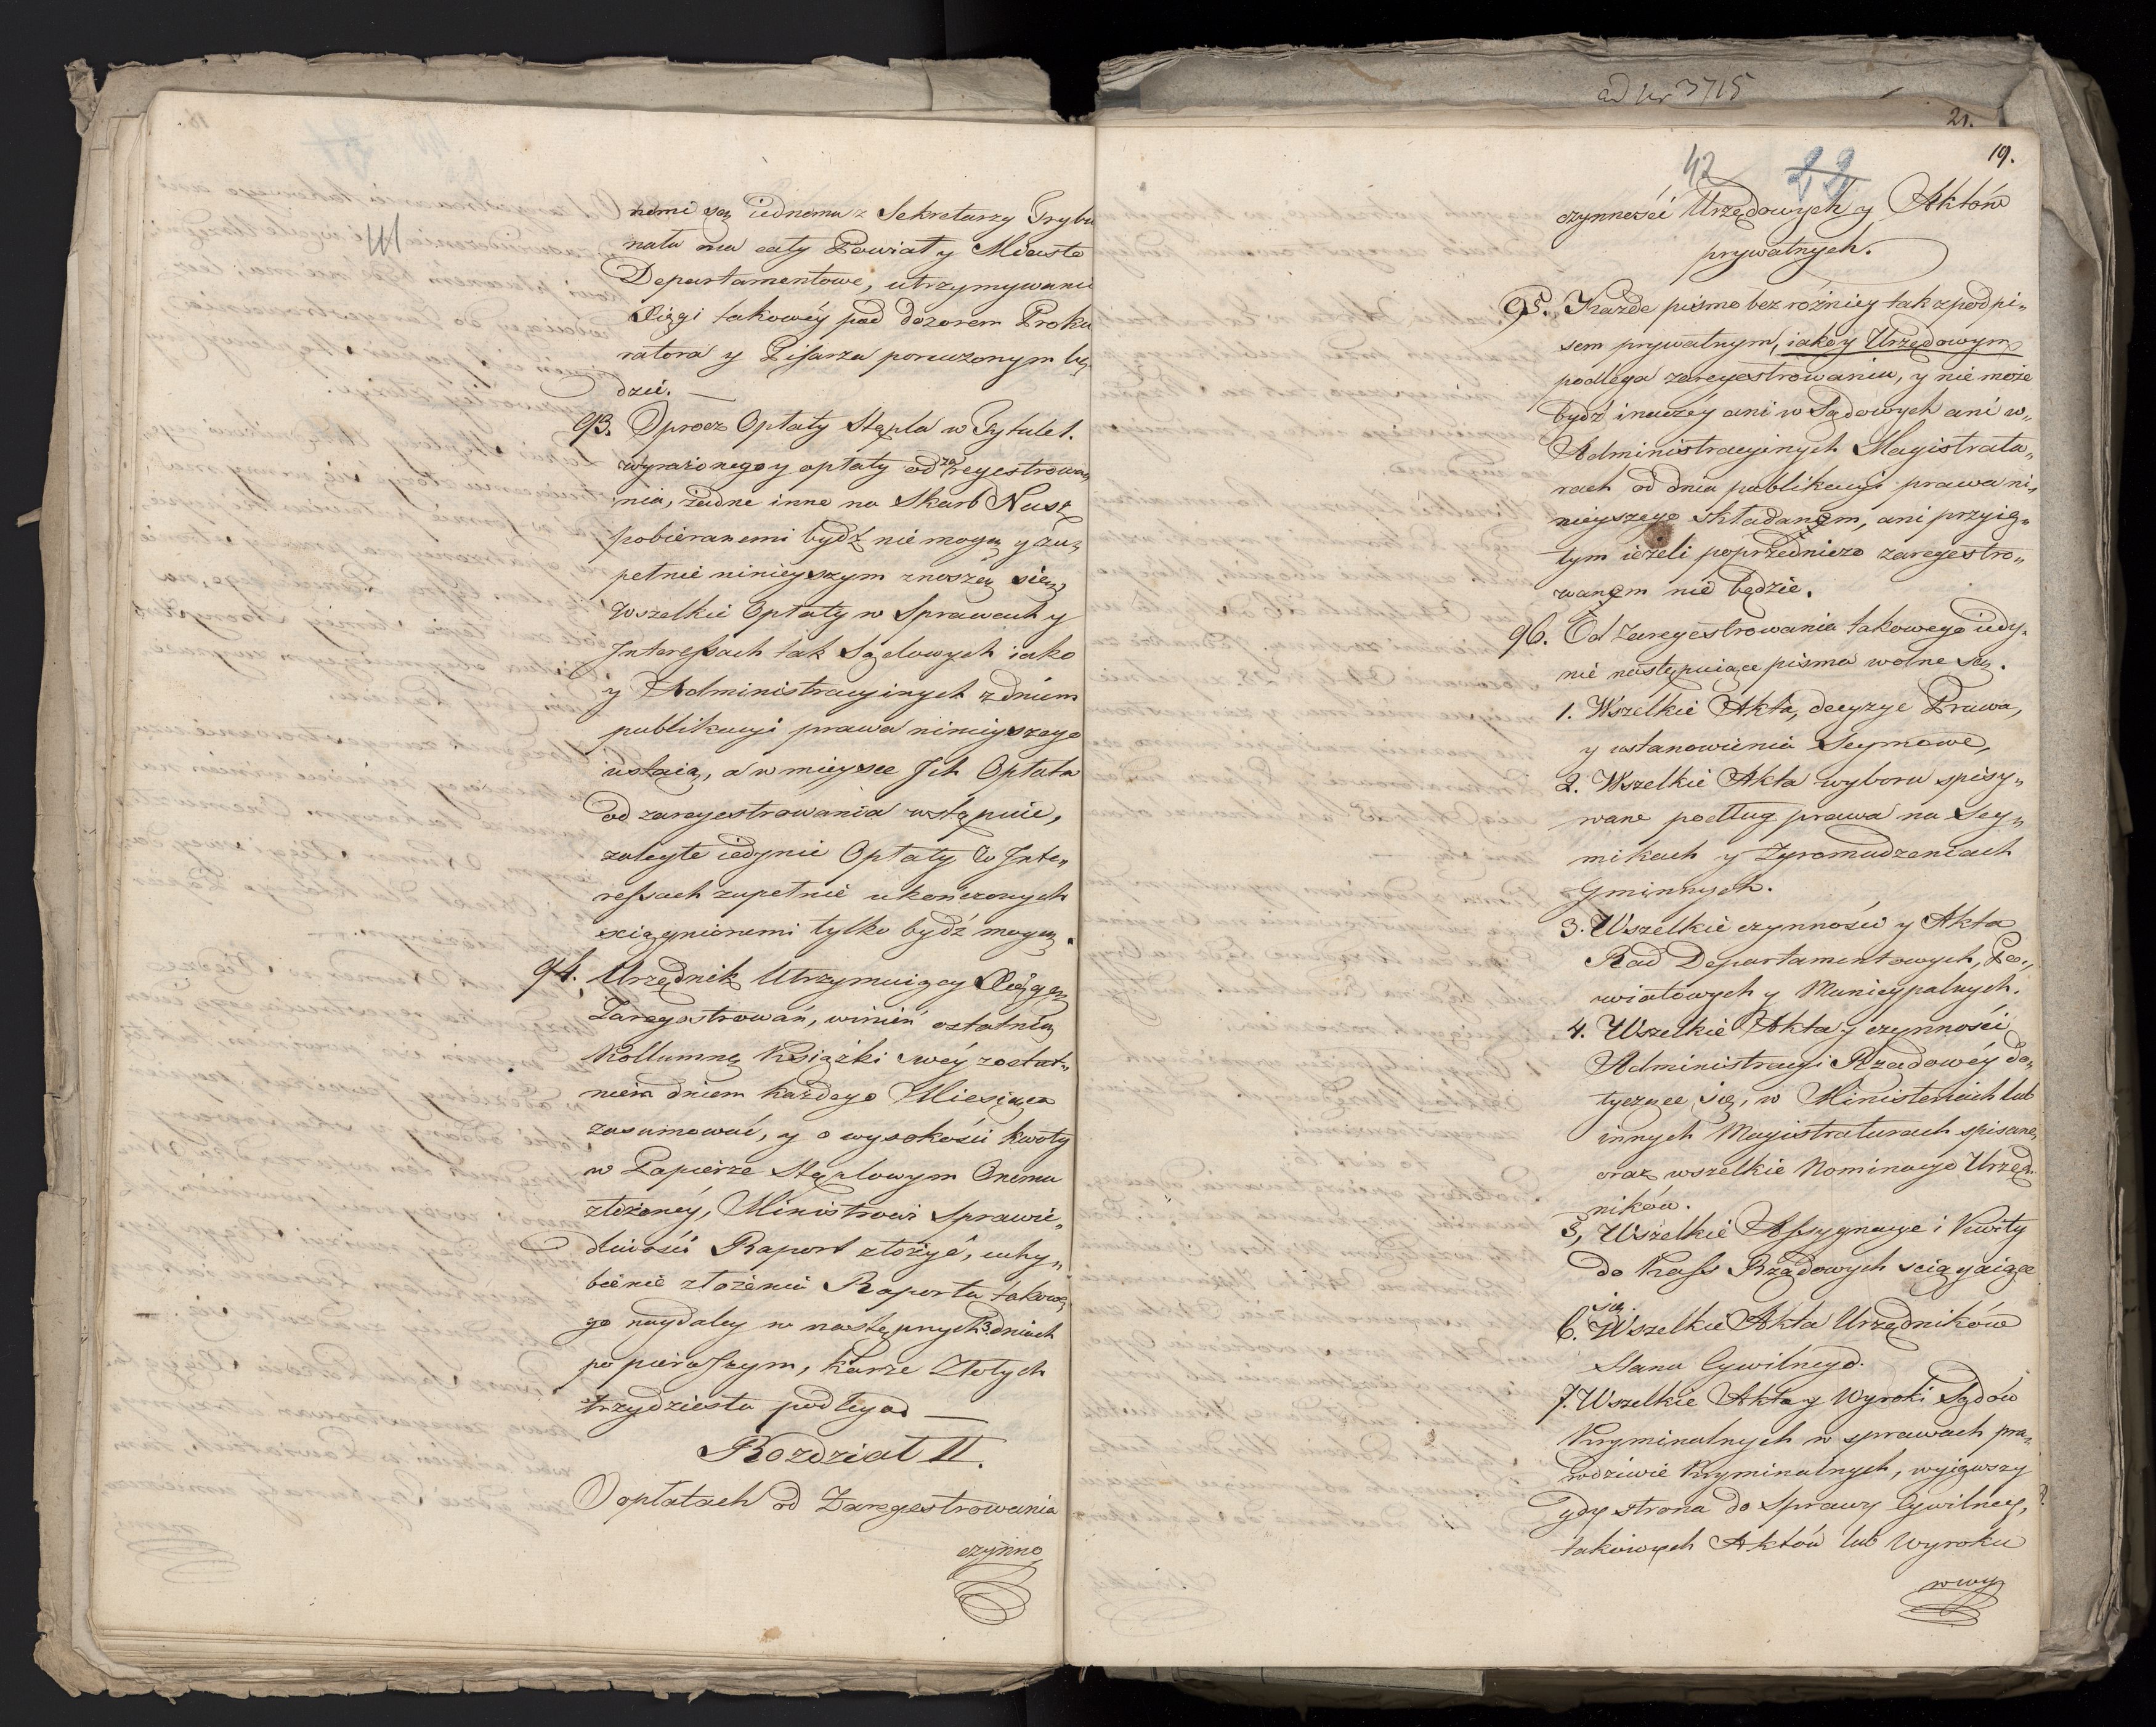 41
nemi są iednemu z Sekretarzy Trybu
nału na cały Powiat y Miasto
Departamentowe, utrzymywanie
Xięgi takowéy pod dozorem Proku
ratora y Pisarza poruczonym bę
dzie. —
93. Oprocz Opłaty Stępla w Tytule 1.
wyrażonego y opłaty od zaregestrowa„
nia, żadne inne na Skarb Nasz
pobieranemi bydź nie mogą y zu„
pełnie ninieyszym znoszą się,
Wszelkie Opłaty w Sprawach y
Interessach tak Sądowych iako
y Administracyinych z dniem
publikacyi prawa ninieyszego
ustaią, a w mieysce Ich Opłata
od zaregestrowania wstąpuie,
zaległe iedynie Opłaty w Inte„
ressach zupełnie ukończonych
sciągnionemi tylko bydź mogą.
94. Urzędnik Utrzymuiący Xięgę
Zaregestrowań, winien ostatnią
Kollumnę Książki swéy z ostat„
niem dniem każdego Miesiąca
zasumować, y o wysokości kwoty
w Papierze Stęplowym Onemu
złożonéy, Ministrowi Sprawie„
dliwości Raport złożyć, uchy„
bienie złożenia Raportu takowe„
go naydaley w następnych 3 dniach
po pierwszym, karze Złotych
trzydziestu podlega. —
Rozdział II.
O opłatach od Zaregestrowania
czynno
ad Nr 3715
21.
19.
42 22
czynności Urzędowych y Aktów
prywatnych.
95. Każde pismo bez różnicy tak z podpi„
sem prywatnym, iako y Urzędowym
podlega zaregestrowaniu, y nie może
bydź inaczéy ani w Sądowych ani w„
Administracyinych Magistratu„
rach od dnia publikacyi prawa ni„
nieyszego składanem, ani przyię„
tym ieżeli poprzedniczo zaregestro„
wanem nie będzie.
96. Od Zaregestrowania takowego iedy„
nie następuiące pisma wolne są.
1. Wszelkie Akta, decyzye Prawa,
y ustanowienia Seymowe,
2. Wszelkie Akta wyboru spisy„
wane podług prawa na Sey„
mikach y Zgromadzeniach
Gminnych.
3. Wszelkie czynności y Akta
Rad Departamentowych, Po„
wiatowych y Municypalnych.
4. Wszelkie Akta y czynności
Administracyi Rządowéy do„
tyczące się, w Ministeriach lub
innych Magistraturach spisane,
oraz wszelkie Nominacye Urzęd„
ników.
5, Wszelkie Assygnacye i Kwity
do Kass Rządowych sciągaiące
się.
6. Wszelkie Akta Urzędników
Stanu Cywilnego.
7. Wszelkie Akta y Wyroki Sądów
Kryminalnych w sprawach pra„
wdziwie Kryminalnych, wyiąwszy
gdy strona do Sprawy Cywilney,
takowych Aktów lub Wyroku
wwy